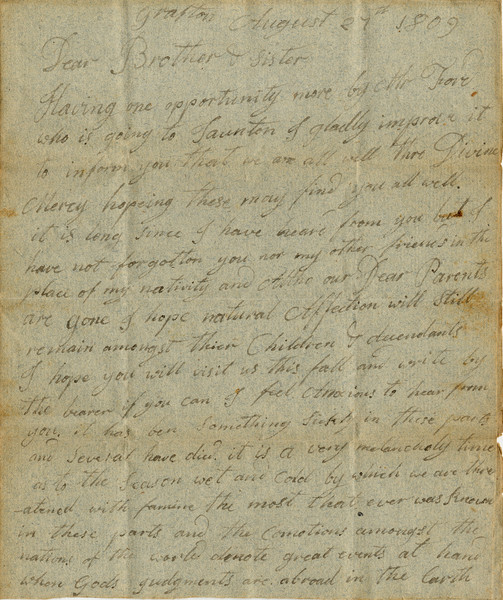 Grafton August 27th 1809
Dear Brother & Sister
Having one opportunity more by Mr Fore
who is going to Taunton I gladly improve it
to inform you that we are all well thro Divine
Mercy hopeing these may find you all well.
it is long since I have heard from you but I
have not forgotton you nor my other friends in the
place of my nativity and Altho our Dear Parents
are gone I hope natural Affection will still
remain amongst thier Children & decendants
I hope you will visit us this fall and write by
the bearer if you can I feel Anxious to hear from
you. it has ben something Sickly in these parts
and several have died. it is a very melancholy time
as to the Season wet and Cold by which we are thre
atened with famine the most that ever was known
in these parts and the Comotions amongst the
nations of the world denote great events at hand
when Gods judgments are abroad in the Earth